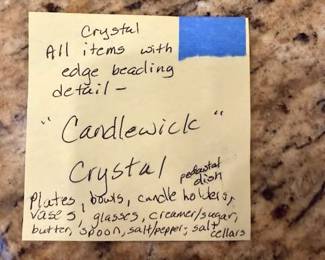 Crystal
All items with
edge beading
detail -
"Candlewick"
Crystal
pedestal
dish
Plates, bowls, candle holders,
vases, glasses, creamer/sugar,
butter, spoon, salt/pepper, salt
cellars